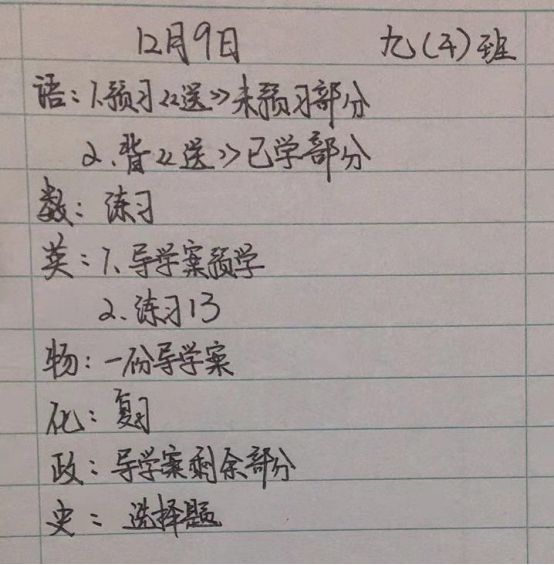 12月9日 九(平)班
语：1.预习《送》未预习部分
2.背《送》已学部分
数：练习
英：1.导学案预学
2.练习13
物：一份导学案
化：复习
政：导学案剩余部分
史：选择题